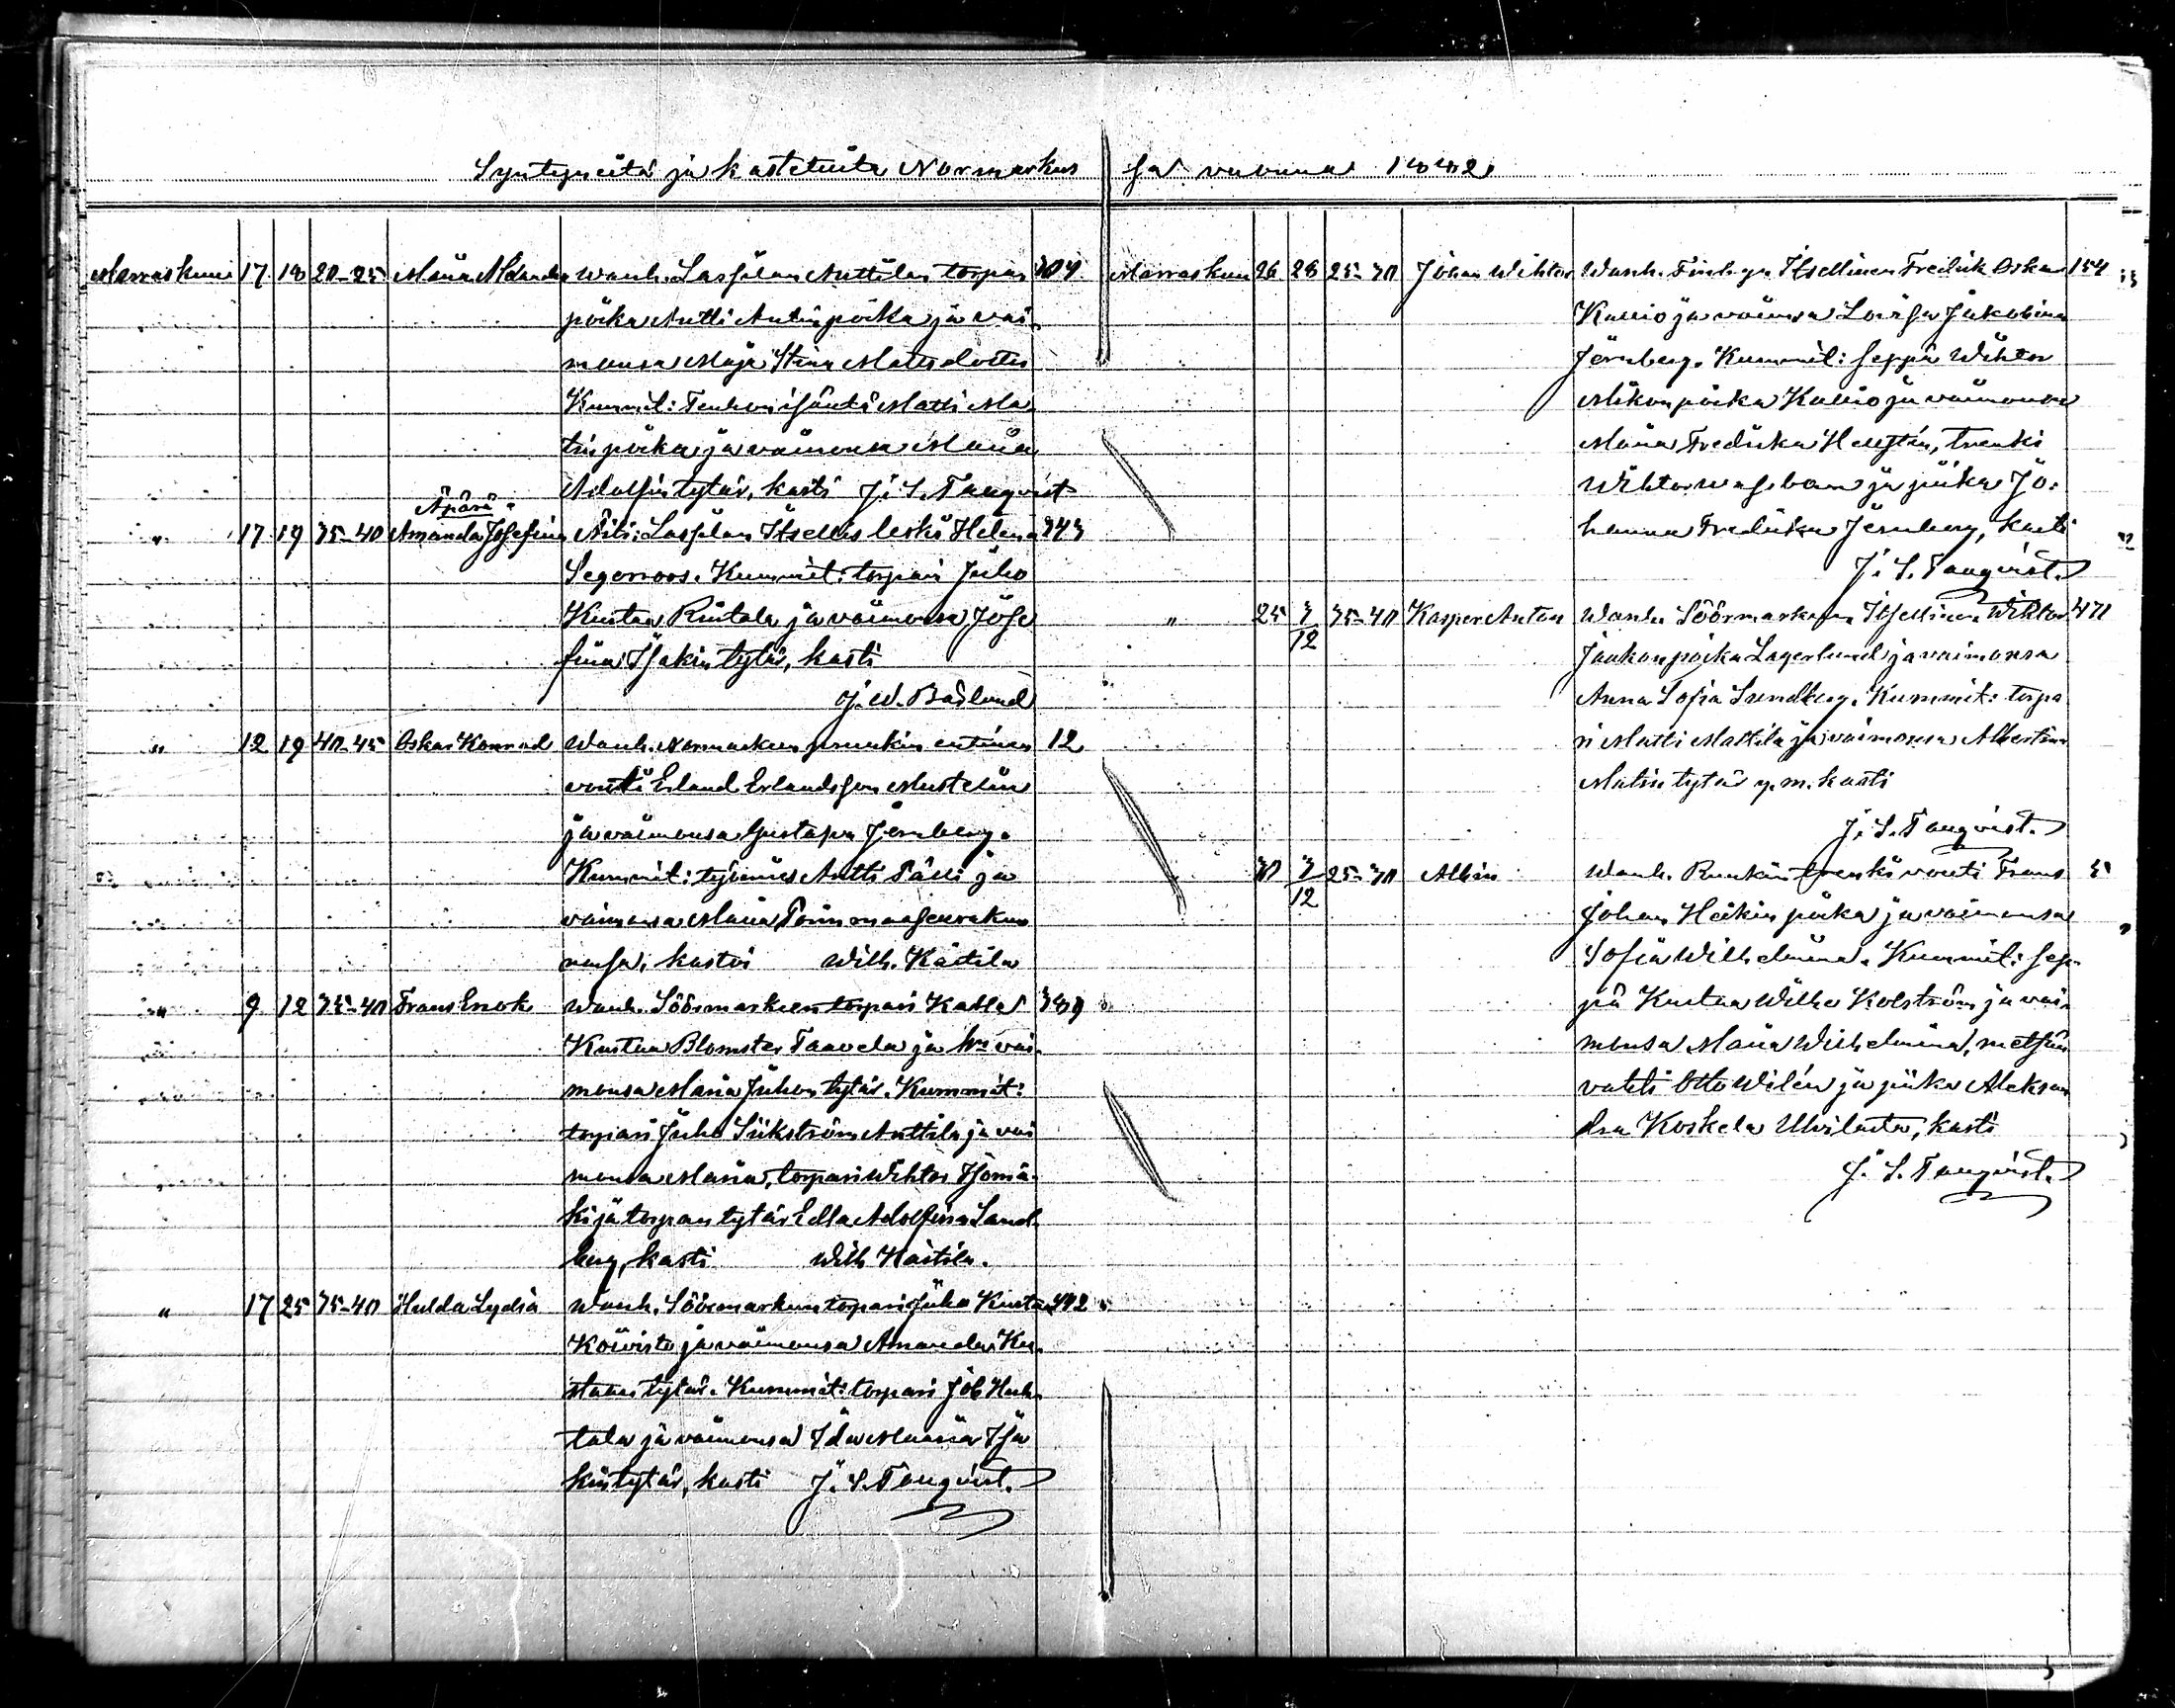 Syntyneitä ja kastetuita Normarkus
sa vuonna 1882.
Marraskuu 17 18 20-25 Maria Aleksandra Wanh. Lassilan Anttilan torpan 304
poika Antti Antinpoika ja vai-
monsa Maja Stina Matsdotter
Kummit: Tenhon isäntä Matti Ma-
tinpoika ja vaimonsa Maria
Adolfintytär, kasti J. S. Tanqvist
Äpärä.
" 17 19 35-40 Amanda Josefina Äiti: Lassilan Itsellis leski Helena 343
Segerroos. Kummit: torpari Juho
Kustaa Rintala ja vaimonsa Jose
fina Isakintytär, kasti
J. W. Båslund
" 12 19 40-45 Oskar Konrad Wanh. Normarkun pruukin entinen 12
vouti Erland Erlandsson Mustelin
ja vaimonsa Gustava Jernberg.
Kummit: työmies Antti Pässi ja
vaimonsa Maria Porin maaseurakun
nasta, kastoi Wilh. Kaitila
" 9 12 35-40 Frans Enok Wanh. Söörmarkun torpari Kalle 389
Kustaa Blomster Taavela ja hn vai-
monsa Maria Juhontytär. Kummit:
torpari Juho Siikström Anttila ja vai
monsa Maria, torpari Wihtor Isomä-
ki ja torparin tytär Edla Adolfina Sand
berg, kasti Wilh Kaitila.
" 17 25 35-40 Hulda Lydia Wanh. Söörmarkun torpari Juho Kustaa 442
Koivisto ja vaimonsa Amanda Ku-
staantytär. Kummit: torpari Job Huh-
tala ja vaimonsa Ida Maria Isa
kintytär, kasti J. S. Tanqvist.
Marraskuu 26 28 25-30 Johan Wihtor Wanh. Finbyn Itsellinen Fredrik Oskar 154
Kallio ja vaimonsa Lovisa Jakobina
Jernberg. Kummit: seppä Wihtor
Mikonpoika Kallio ja vaimonsa
Maria Fredrika Hellstén, trenki
Wihtor ja piika Jo-
hanna Fredrika Jernberg, kasti
J. S. Tanqvist.
" 25 3/12 35-40 Kasper Anton Wanh. Söörmarkun Itsellinen Wihtor 471
Jaakonpoika Lagerlund ja vaimonsa
Anna Sofia Sundberg. Kummit: torpa
ri Matti Mattila ja vaimonsa Albertina
Matintytär y. m. kasti
J. S. Tanqvist.
" 30 3/12 25-30 Albin Wanh. Ruukin trenki vouti Frans 5
Johan Heikinpoika ja vaimonsa
Sofia Wilhelmina. Kummit: sep-
pä Kustaa Wilho Kolström ja vai-
monsa Maria Wilhelmina, metsän
vahti Otto Wilén ja piika Aleksan
dra Koskela Ulvilasta, kasti
J. S. Tanqvist.